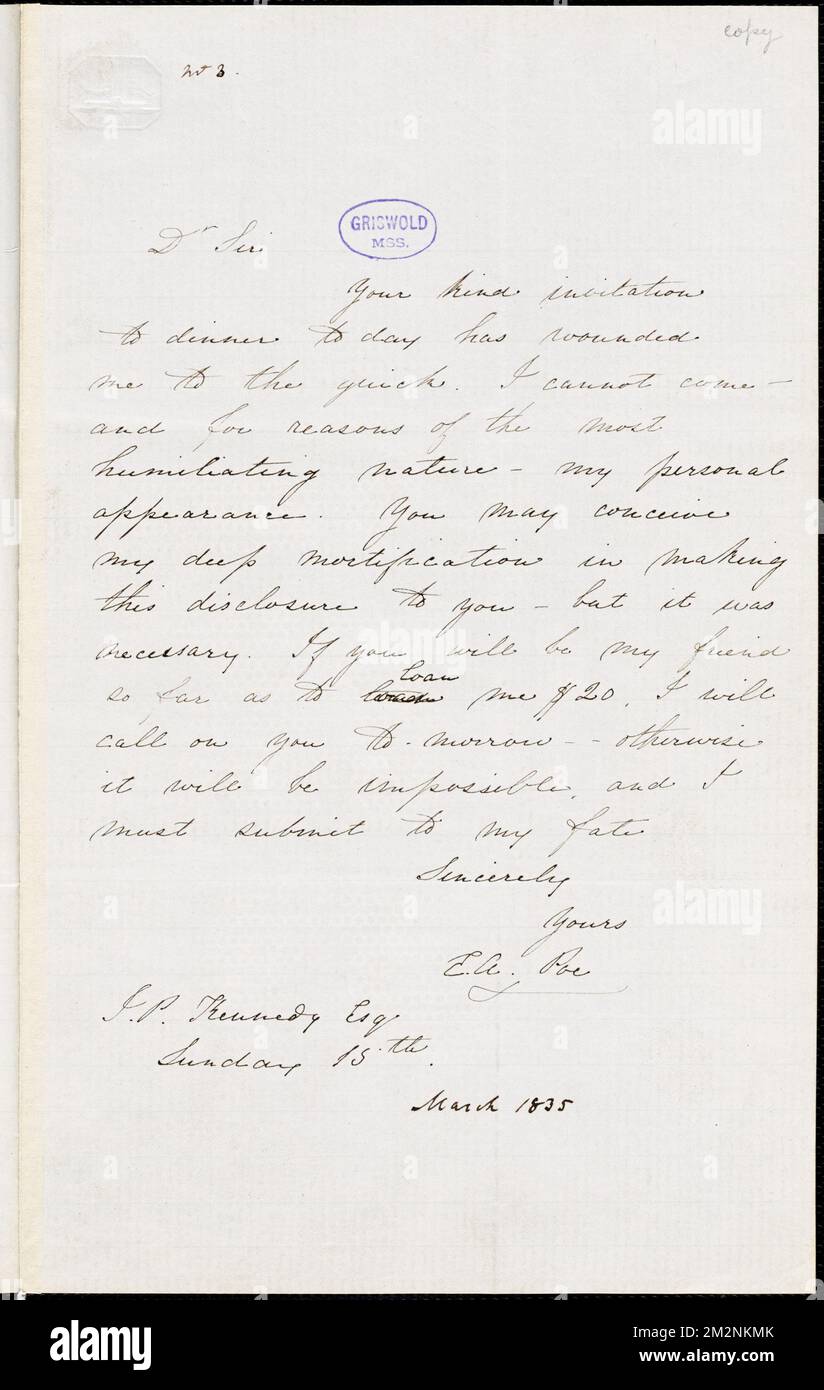 copy
No 3.
GRISWOLD
MSS.
Dr Sir
Your kind invitation
to dinner to day has wounded
me to the quick. I cannot come –
and for reasons of the most
humiliating nature – my personal
appearance. You may conceive
my deep mortification in making
this disclosure to you – but it was
necessary. If you will be my friend
loan
so far as to me $20, I will
call on you to-morrow – – otherwise
it will be impossible, and I
must submit to my fate
Sincerely
Yours
E.A. Poe
J.P. Kennedy Esq
Sunday 15th.
March 1835
alamy
Image ID: 2M2NKMK
www.alamy.com